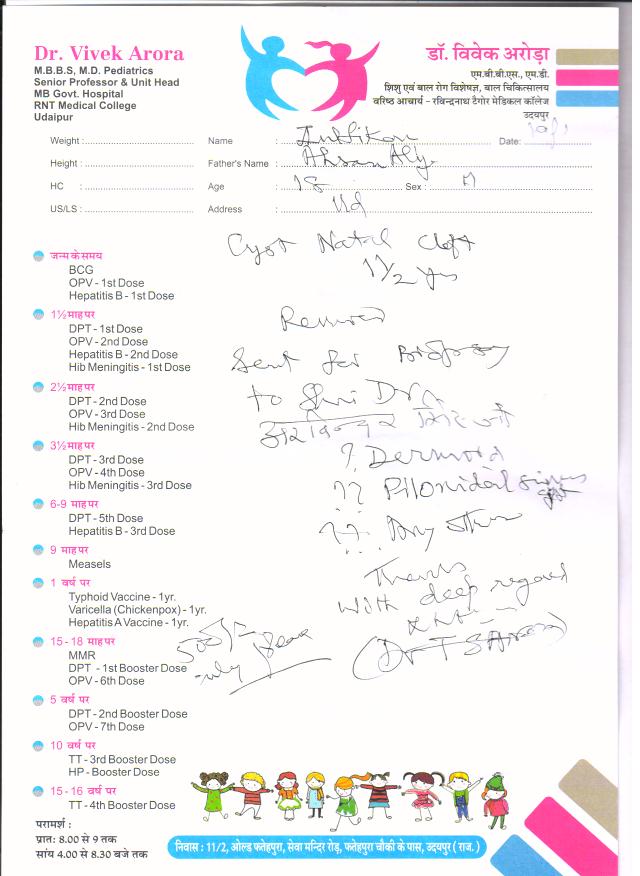 Dr. Vivek Arora
M.B.B.S, M.D. Pediatrics
Senior Professor & Unit Head
MB Govt. Hospital
RNT Medical College
Udaipur
डॉ. विवेक अरोड़ा
एम.बी.बी.एस., एम.डी.
शिशु एवं बाल रोग विशेषज्ञ, बाल चिकित्सालय
वरिष्ठ आचार्य - रविन्द्रनाथ टैगोर मेडिकल कॉलेज
उदयपुर
Weight : Name : Date:
Height : Father's Name :
HC : Age : 18 Sex : M
US/LS : Address : Ud
Cyst Natal Cleft
1 1/2 yrs
Removed
Sent for Biopsy
to Shri Dr.
? Dermoid
?? Pilonidal sinus
??? Any other
Thanks
with deep regard
500/-
only please
जन्म के समय
BCG
OPV - 1st Dose
Hepatitis B - 1st Dose
1½ माह पर
DPT - 1st Dose
OPV - 2nd Dose
Hepatitis B - 2nd Dose
Hib Meningitis - 1st Dose
2½ माह पर
DPT - 2nd Dose
OPV - 3rd Dose
Hib Meningitis - 2nd Dose
3½ माह पर
DPT - 3rd Dose
OPV - 4th Dose
Hib Meningitis - 3rd Dose
6-9 माह पर
DPT - 5th Dose
Hepatitis B - 3rd Dose
9 माह पर
Measels
1 वर्ष पर
Typhoid Vaccine - 1yr.
Varicella (Chickenpox) - 1yr.
Hepatitis A Vaccine - 1yr.
15 - 18 माह पर
MMR
DPT - 1st Booster Dose
OPV - 6th Dose
5 वर्ष पर
DPT - 2nd Booster Dose
OPV - 7th Dose
10 वर्ष पर
TT - 3rd Booster Dose
HP - Booster Dose
15 - 16 वर्ष पर
TT - 4th Booster Dose
परामर्श :
प्रातः 8.00 से 9 तक
सांय 4.00 से 8.30 बजे तक
निवास : 11/2, ओल्ड फतेहपुरा, सेवा मन्दिर रोड़, फतेहपुरा चौकी के पास, उदयपुर ( राज. )